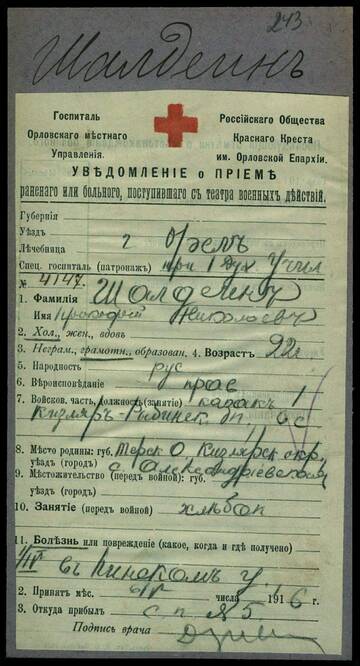 243
Шалдеинъ
Госпиталь
Орловскаго мѣстнаго
Управленія.
Россійскаго Общества
Краснаго Креста
им. Орловской Епархіи.
УВѢДОМЛЕНІЕ о ПРІЕМѢ
раненаго или больного, поступившаго съ театра военныхъ дѣйствій.
Губернія
Уѣздъ
Лѣчебница г Орелъ
Спец. госпиталь (патронажъ) при 1 Дух Учил
№ 4147.
1. Фамилія Шалдеинъ
Имя Прокофій Николаевъ
2. Хол., жен., вдовъ
3. Неграм., грамотн., образован. 4. Возрастъ 22 г
5. Народность рус
6. Вѣроисповѣданіе прав
7. Войсков. часть, Должность (званіе) казакъ 1
Кизляр-Гребенск. п. 6 с
8. Мѣсто родины: губ. Терск О Кизлярск окр,
уѣздъ (городъ) с Александрiевской
9. Мѣстожительство (передъ войной): губ.
уѣздъ (городъ)
10. Занятіе (передъ войной) хлѣбоп
11. Болѣзнь или поврежденіе (какое, когда и гдѣ получено)
въ Пинскомъ у.
2. Принятъ мѣс. числа 1916 г.
3. Откуда прибылъ с п № 5
Подпись врача